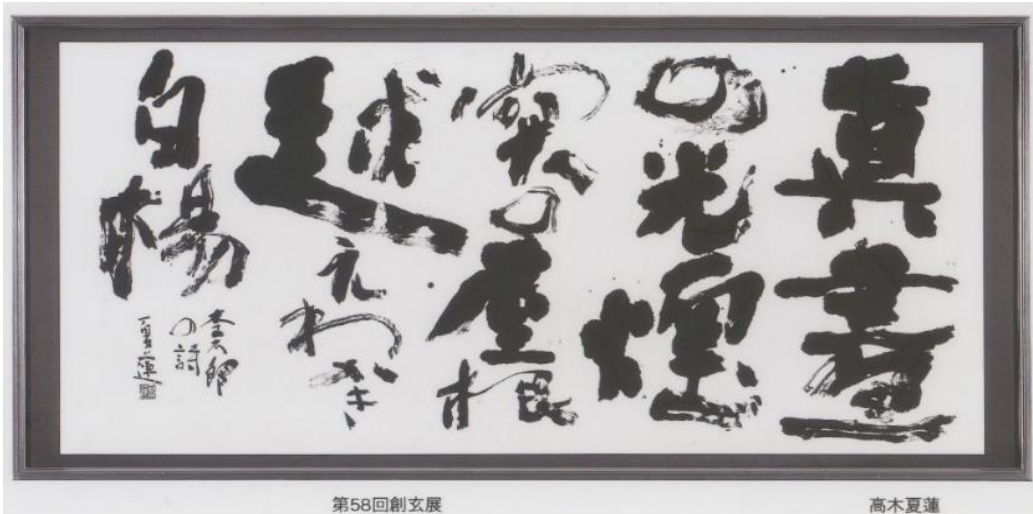 真晝
の光煙
突の屋根
越えわかき
白楊
杢太郎
の詩
夏蓮
第58回創玄展
高木夏蓮